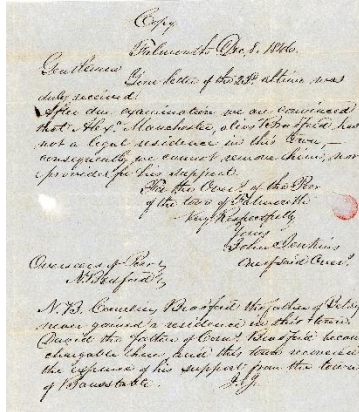 Copy
Falmouth Dec. 8. 1846.
Gentlemen
Your letter of the 23d. ultimo was
duly received.
After due examination we are convinced
that Alexr. Manchester, alias Bradford has
not a legal residence in this town,—
consequently we cannot remove him, nor
provide for his support.
For the Overs. of the Poor
of the town of Falmouth
Very Respectfully
Yours
John Jenkins
One of said Overs.
Overseers of Poor
N. Bedford
N.B. Cornelius Bradford the father of
never gained a residence in this town.
David the father of Cors. Bradford became
chargable there, and this town recovered
the expense of his support from the town
of Barnstable.
J. J.